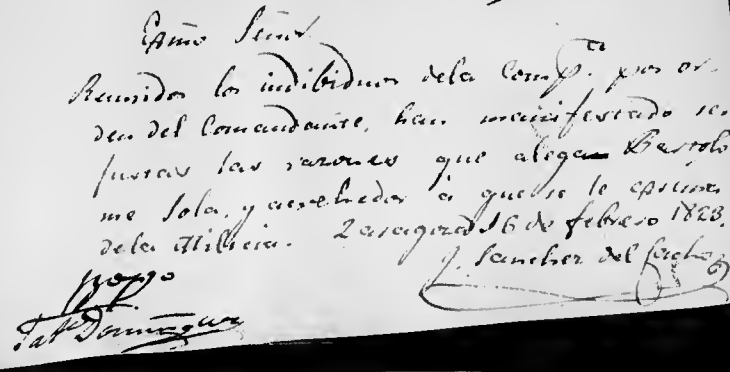 Exmo Señor
Reunidos los indibiduos dela Comp.ª por or-
den del Comandante, han manifestado ser
justas las razones que alega Bartolo
me Sola, y acrehedor à que se le exsima
dela Milicia. Zaragoza 16 de febrero 1823.
J. Sanchez del Cacho
Dominguez